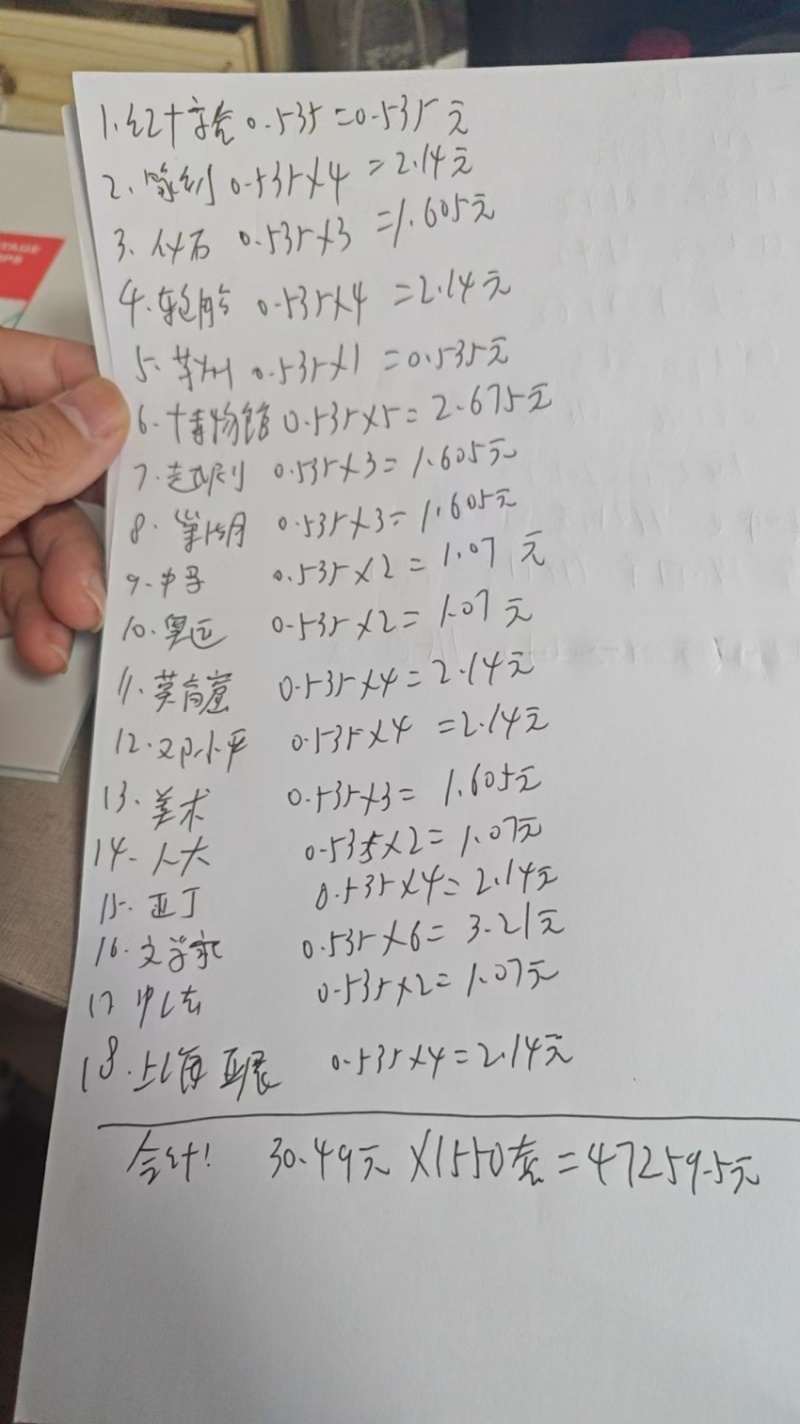 1. 红十字会 0.535 = 0.535元
2. 篆刻 0.535×4 = 2.14元
3. 化石 0.535×3 = 1.605元
4. 0.535×4 = 2.14元
5. 0.535×1 = 0.535元
6. 博物馆 0.535×5 = 2.675元
7. 0.535×3 = 1.605元
8. 0.535×3 = 1.605元
9. 0.535×2 = 1.07元
10. 奥运 0.535×2 = 1.07元
11. 莫高窟 0.535×4 = 2.14元
12. 邓小平 0.535×4 = 2.14元
13. 美术 0.535×3 = 1.605元
14. 人大 0.535×2 = 1.07元
15. 亚丁 0.535×4 = 2.14元
16. 文学家 0.535×6 = 3.21元
17 中法 0.535×2 = 1.07元
18. 上海亚展 0.535×4 = 2.14元
合计! 30.49元×1550套=47259.5元